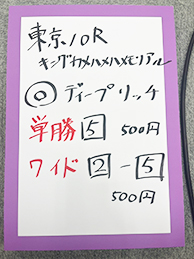 東京10R
キングカメハメハメモリアル
◎ ディープリッチ
単勝 5 500円
ワイド 2 - 5
500円